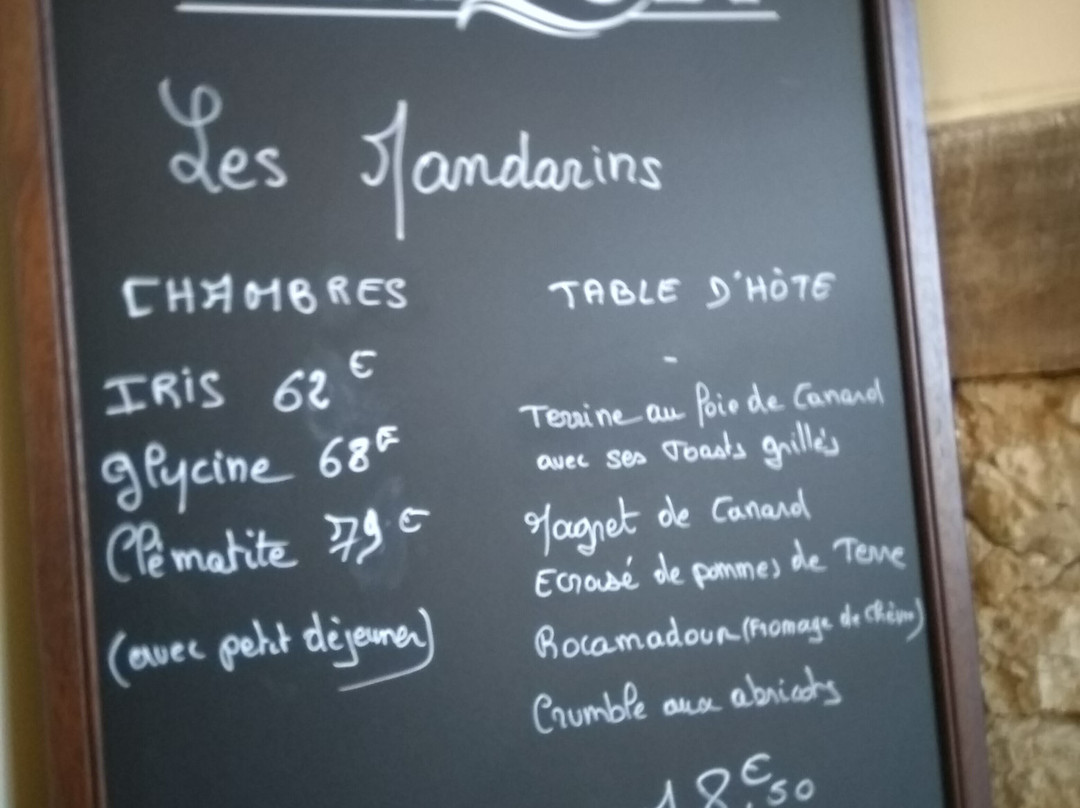 Les Mandarins
CHAMBRES
IRIS 62€
Glycine 68€
Clématite 79€
(avec petit déjeuner)
TABLE D'HÔTE
Terrine au foie de Canard
avec ses Toasts grillés
Magret de Canard
Ecrasé de pommes de Terre
Rocamadour (Fromage de Chèvre)
Crumble aux abricots
18€,50